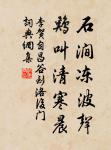 石涧冻波声
鸡叫清寒晨
李贺自昌谷到洛后门
词典网集